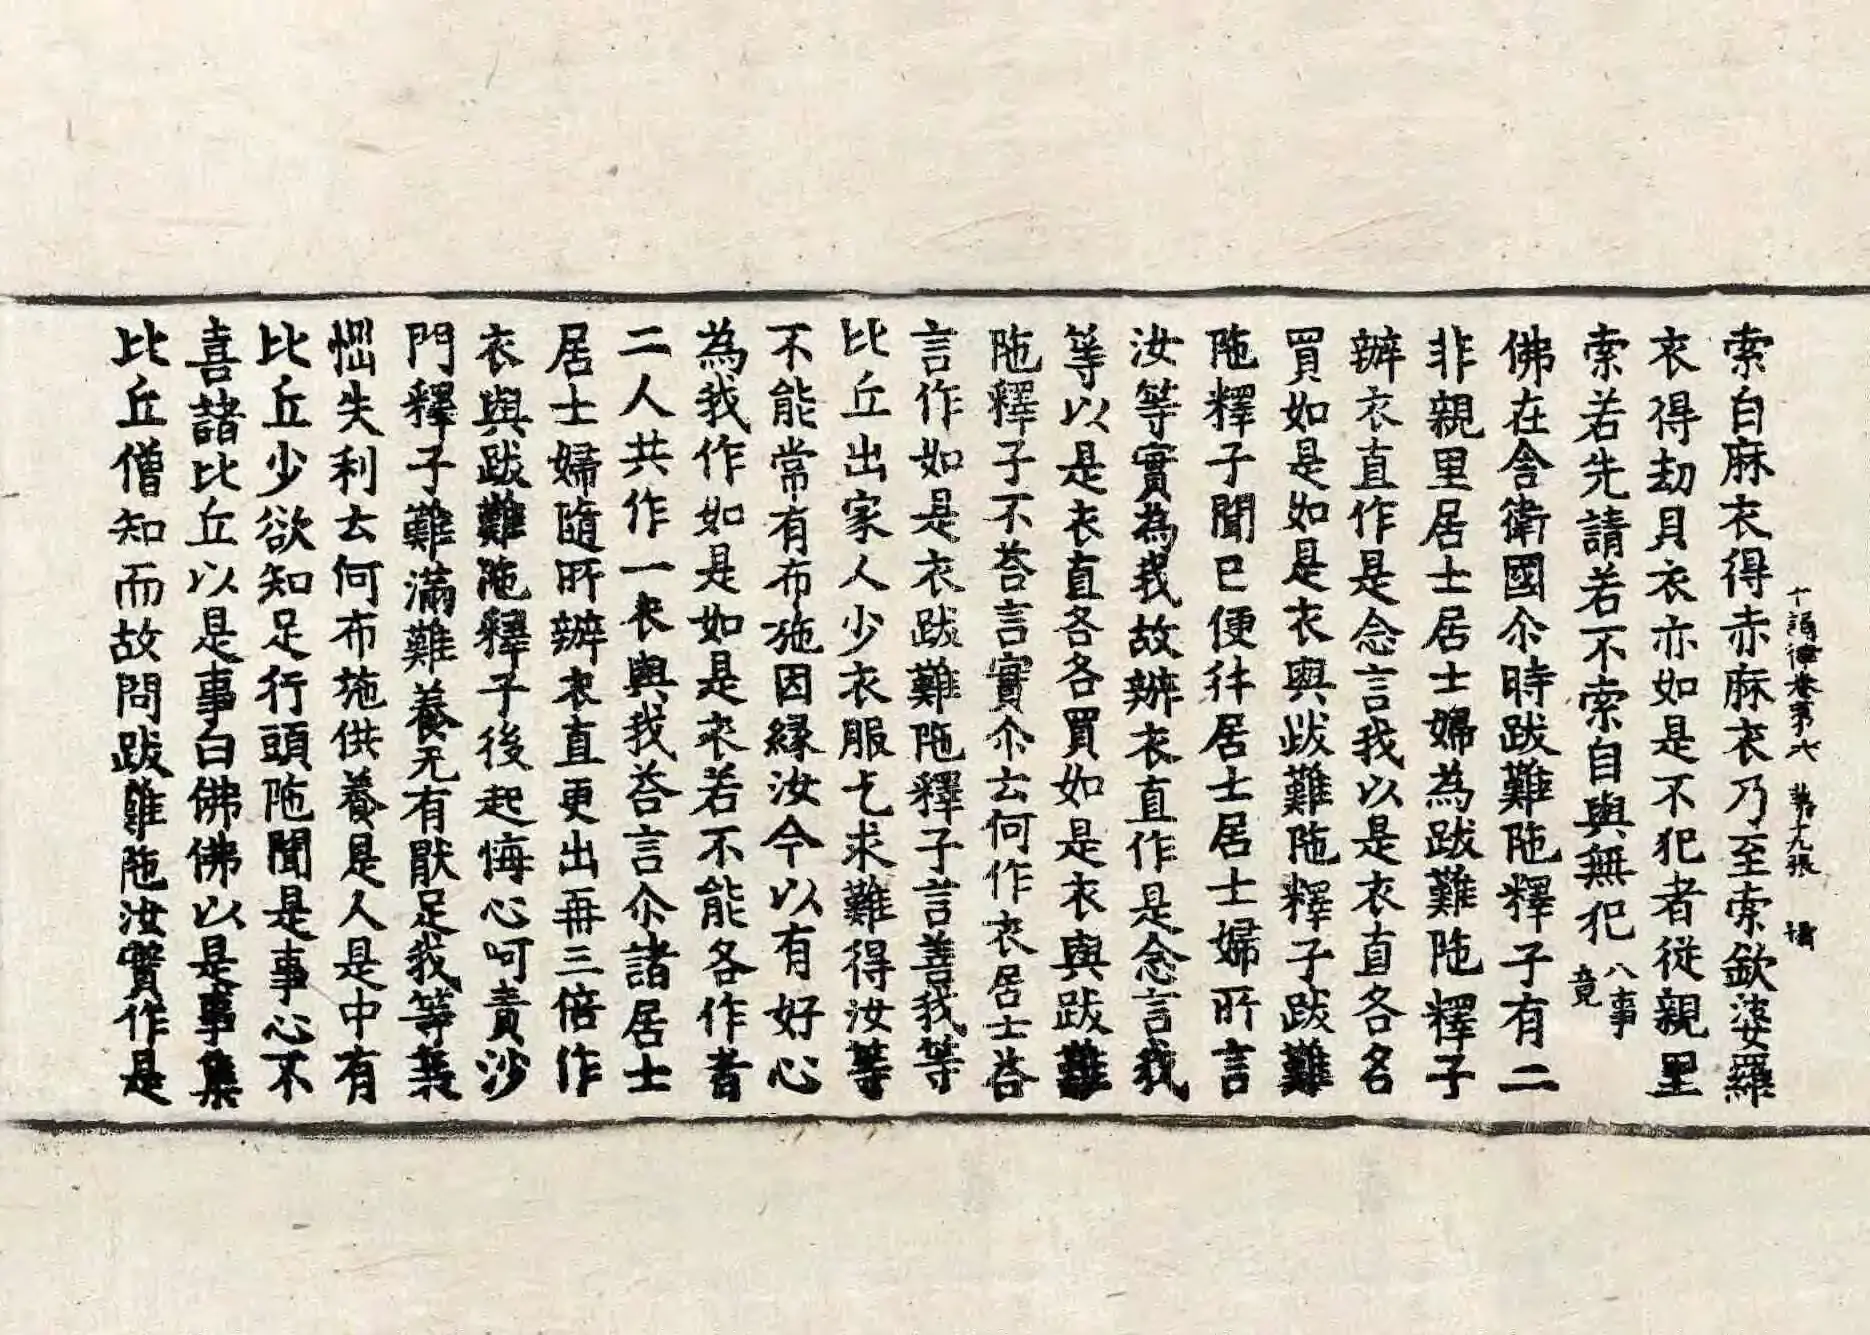 十誦律卷第六　第九張
索白麻衣得赤麻衣乃至索欽婆羅
衣得劫貝衣亦如是不犯者從親里
索若先請若不索自與無犯八事竟
佛在舍衛國尒時跋難陁釋子有二
非親里居士居士婦為跋難陁釋子
辦衣直作是念言我以是衣直各各
買如是如是衣與跋難陁釋子跋難
陁釋子聞已便往居士居士婦所言
汝等實為我故辦衣直作是念言我
等以是衣直各各買如是衣與跋難
陁釋子不荅言實尒云何作衣居士荅
言作如是衣跋難陁釋子言善我等
比丘出家人少衣服乞求難得汝等
不能常有布施因緣汝今以有好心
為我作如是如是衣若不能各作者
二人共作一衣與我荅言尒諸居士
居士婦隨所辦衣直更出再三倍作
衣與跋難陁釋子後起悔心呵責沙
門釋子難滿難養无有猒足我等衰
惱失利云何布施供養是人是中有
比丘少欲知足行頭陁聞是事心不
喜諸比丘以是事白佛佛以是事集
比丘僧知而故問跋難陁汝實作是